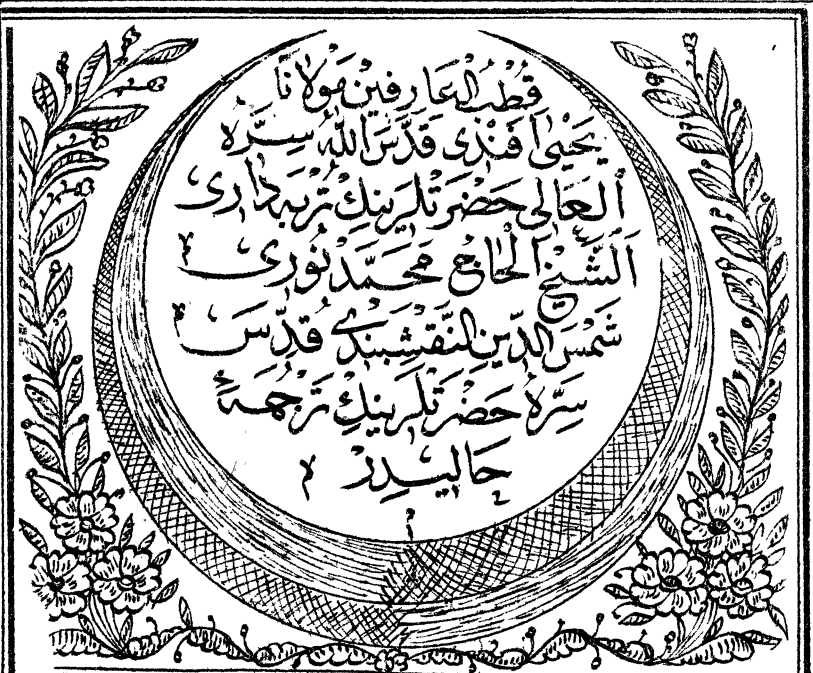 قُطْبُ الْعَارِفِينْ مَوْلَانَا
يَحْيٰى اَفَنْدِى قَدَّسَ اللّٰهُ سِرَّهُ
اَلْعَالِى حَضْرَتْلَرِينِكْ تُرْبَه دَارِى
اَلشَّيْخْ اَلْحَاجْ مُحَمَّدْ نُورِى
شَمْسُ الدِّينِ النَّقْشِبَنْدِى قُدِّسَ
سِرُّهُ حَضْرَتْلَرِينِكْ تَرْجُمَهٔ
حَالِيدِرْ